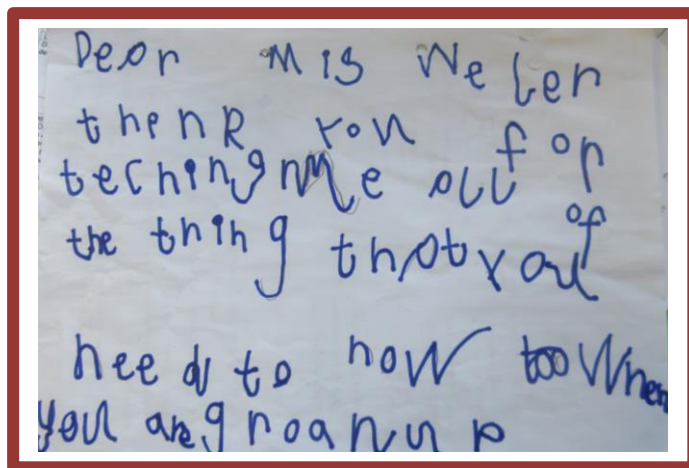 Dear Mis Weler
thenk you for
teching me all of
the thing that you
need to now too When
you are groan up